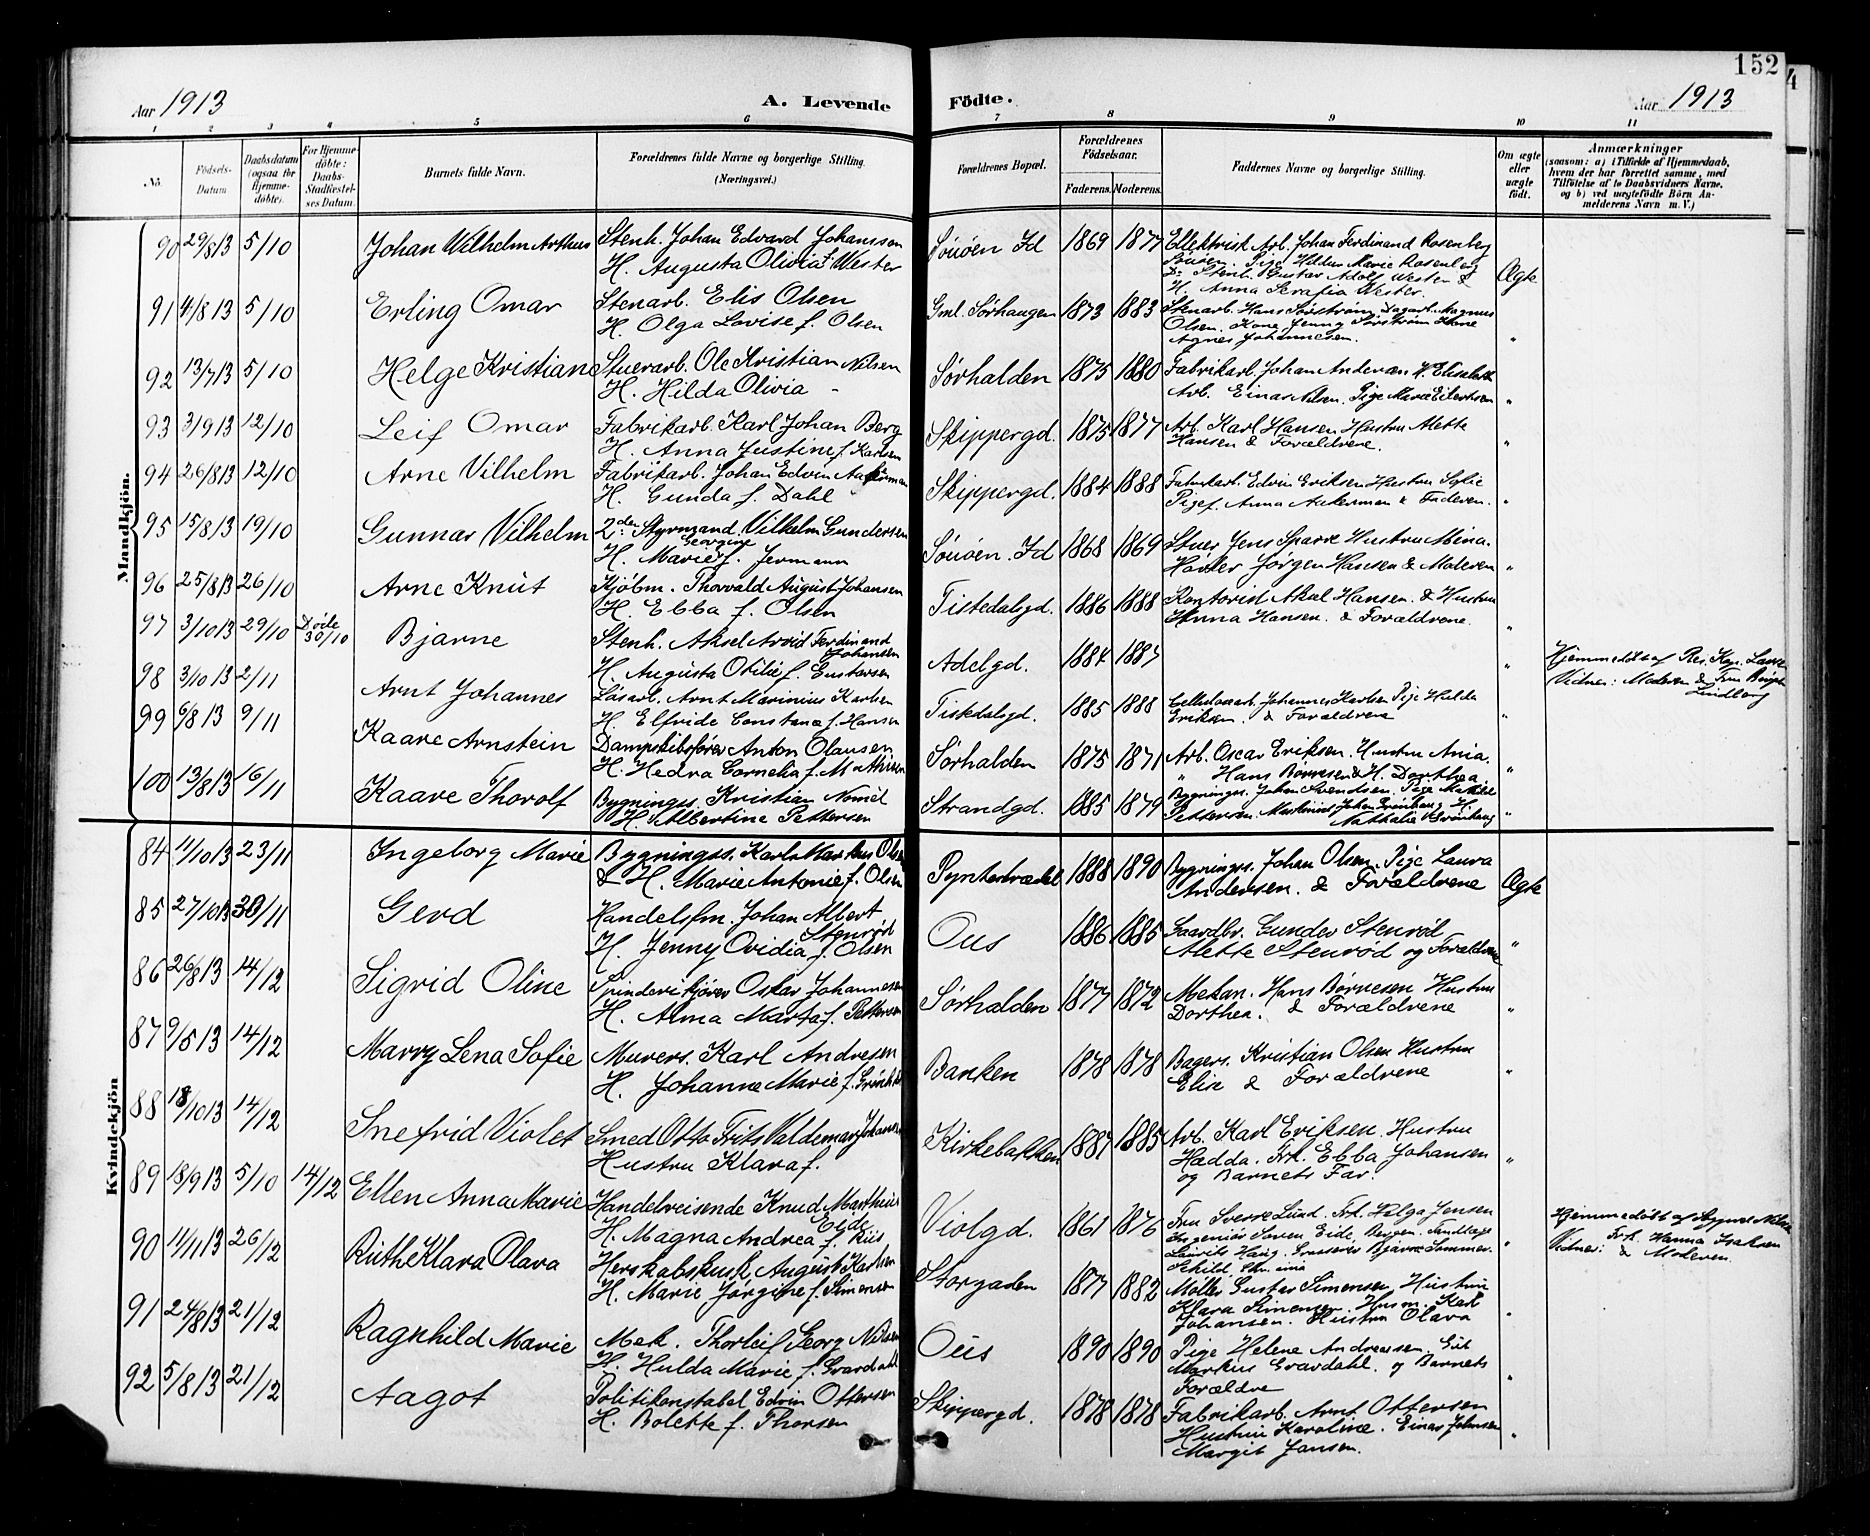 152
4
Aar 1913
A. Levende
Födte.
Aar 1913
1 2 3 4 5 6 7 8 9 10 11
No.
Födsels-
Datum
Daabsdatum
(ogsaa for
Hjemme-
döbte).
For Hjemme-
döbte:
Daabs-
Stadfæstel-
ses Datum.
Barnets fulde Navn.
Forældrenes fulde Navne og borgerlige Stilling.
(Næringsvei.)
Forældrenes Bopæl.
Forældrenes
Födselsaar.
Faderens.
Moderens.
Faddernes Navne og borgerlige Stilling.
Om ægte
eller
uægte
födt.
Anmærkninger
(saasom: a) i Tilfælde af Hjemmedaab,
hvem der har forrettet samme, med
Tilföielse af to Daabsvidners Navne,
og b) ved uægtefödte Börn An-
melderens Navn m. V.)
Mandkjön.
90 29/8 13 5/10 Johan Wilhelm Arthur Stenh. Johan Edvard Johansson
H. Augusta Olivia f. Wester
Souöen Id 1869 1877 Ellektrisk Arb. Johan Ferdinand Rosenberg
Souöen. Pige Hildur Marie Rosenberg
Do Stenh. Gustav Adolf Westen &
H. Anna Serafia Wester.
Ægte
91 4/8 13 5/10 Erling Omar Stenarb. Elis Olsen
H. Olga Lovise f. Olsen
Gml. Sörhaugen 1873 1883 Stenarb. Hans Sörström Dagarb. Magnus
Olsen. Kone Jenny Sörström Kone
Agnes Johannesen. "
92 13/7 13 5/10 Helge Kristian Stuerarb. Ole Kristian Nilsen
H. Hilda Olivia -
Sörhalden 1875 1880 Fabrikarb. Johan Andersen H. Elisabeth
Arb. Einar Nilsen. Pige Marie Eilertsen "
93 3/9 13 12/10 Leif Omar Fabrikarb. Karl Johan Berg
H. Anna Justine f. Karlsen
Skippergd. 1875 1877 Arb. Karl Hansen Hustru Alette
Hansen & Forældrene. "
94 26/8 13 12/10 Arne Vilhelm Fabrikarb. Johan Edvin Aakerman
H. Gunda f. Dahl
Skippergd. 1884 1888 Fabrikarb. Edvin Eriksen Hustru Sofie
Pigef. Anna Aakerman & Faderen. "
95 15/8 13 19/10 Gunnar Vilhelm 2den Styrmand. Vilhelm Gundersen
Georgine
H. Marie f. Jermann
Souöen. Id 1868 1869 Stuer Jens Sparre Hustru Mina.
Havler Jørgen Hansen & Moderen "
96 25/8 13 26/10 Arne Knut Kjöbm. Thorvald August Johansen
H. Ebba f. Olsen
Tistedalsgd. 1886 1888 Kontorist Aksel Hansen & Hustru
Anna Hansen. & Forældrene. "
97 3/10 13 29/10 Döde
30/10 Bjarne Stenh. Aksel Arvid Ferdinand
Johansen
H. Augusta Otilie f. Gustavsen
Adelgd. 1884 1887 "
Hjemmedöbt af Res. Kap. Lasse
Vidner: Moderen & Fru Birgit
Lindberg
98 3/10 13 2/11 Arnt Johannes Lösarb. Arnt Marinius Karlsen
H. Elfride Constance f. Hansen
Tistedalsgd. 1885 1888 Cellulosearb. Johannes Karlsen Pige Hulda
Eriksen. & Forældrene "
99 6/8 13 9/11 Kaare Arnstein Dampskibsförer Anton Olausen
H. Hedva Cornelia f. Mathisen
Sörhalden 1875 1871 Arb. Oscar Eriksen. Hustru Ania.
" Hans Börresen & H. Dorthea. "
100 13/8 13 16/11 Kaare Thorolf Bygningss. Kristian Nomèl
H. Albertine Pettersen
Strandgd. 1885 1879 Bygningss. Johan Svendsen. Pige Matilde
Pettersen. Maskinist Johan Grönhaug H.
Nathalie Grönhaug "
Kvindekjön
84 11/10 13 23/11 Ingeborg Marie Bygningss. Karl Markus Olsen
& H. Marie Antonie f. Olsen
1888 1890 Bygningss. Johan Olsen. Pige Laura
Andersen. & Forældrene Ægte
85 27/10 13 30/11 Gerd Handelsfm. Johan Albert
Stenröd
H. Jenny Ovidia f. Olsen
Ous 1886 1885 Gaardbr. Gunder Stenröd
Alette Stenröd og Forældrene "
86 26/8 13 14/12 Sigrid Oline Spinderikjörer Oskar Johannesen
H. Alma Marta f. Pettersen
Sörhalden 1877 1872 Mekan. Hans Börresen Hustru
Dorthea. & Forældrene "
87 9/5 13 14/12 Marry Lena Sofie Murers. Karl Andresen
H. Johanne Marie f.
Banken 1878 1878 Bagers. Kristian Olsen Hustru
Elise & Forældrene "
88 18/10 13 14/12 Snefrid Violet Smed Otto Frits Valdemar Johansen
Hustru Klara f.
Kirkebakken 1887 1885 Arb. Karl Eriksen. Hustru
Hædda. Frk. Ebba Johansen
og Barnets Far. "
89 18/9 13 5/10 14/12 Ellen Anna Marie Handelreisende Knud Martheus
Eide
H. Magna Andrea f. Riis
Violgd. 1861 1876 Fru Sverre Lund. Frk. Helga Jensen
Ingeniör Sören Eide, Bergen. Tandlæge
Lauritz Haug. Grosserer Bjarne Sommer-
"
Hjemmedöbt af
Vidner: Frk. Hanna Isaksen
& Moderen.
90 11/11 13 26/12 Ruth Klara Olava Herskabskusk August Karlsen
H. Marie Jörgine f. Simensen
Storgaden 1877 1882 Möller Gustav Simensen, Hustru
Klara Simensen. Husm. Karl
Johansen. Hustru Olava "
91 24/8 13 21/12 Ragnhild Marie Mek. Thorleif Georg Nilsen
H. Hulda Marie f. Gravdahl
Ous 1890 1890 Pige Helene Andreassen. Gut
Markus Gravdahl. og Barnets
Forældre "
92 5/8 13 21/12 Aagot Politikonstabel Edvin Ottersen
H. Bolette f. Thorsen
Skippergd. 1878 1878 Fabrikarb. Arnt Ottersen
Hustru Karoline. Einar Johnsen
Margit Jansen. "